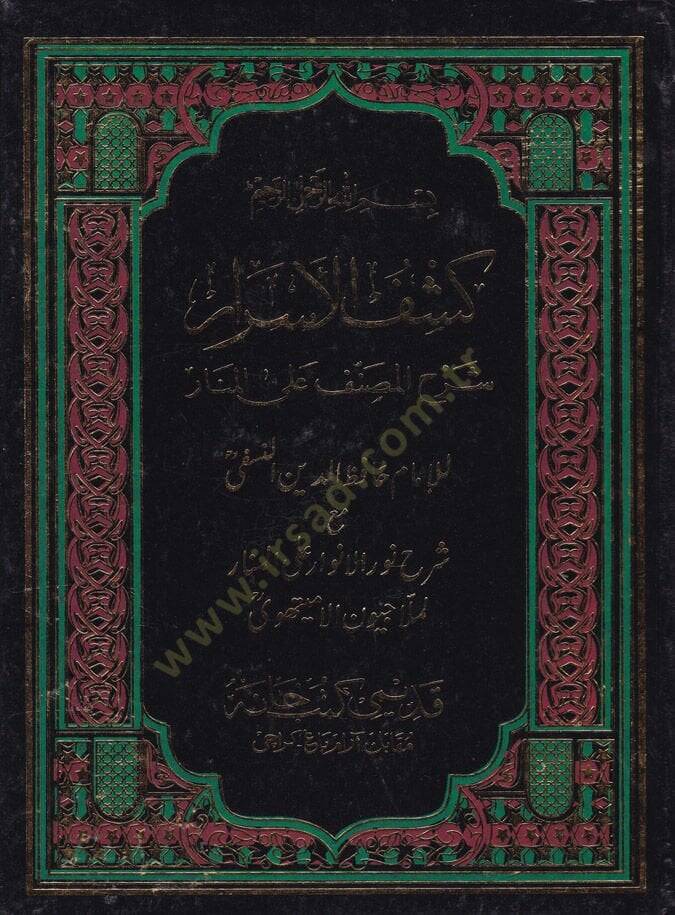 بسم الله الرحمن الرحيم
كشف الأسرار
شرح المصنف على المنار
للإمام حافظ الدين النسفي
مع
شرح نور الانوار على المنار
لملاجيون الاميتهوي
قديمي كتب خانه
مقابل آرام باغ كراچی
www.irsad.com.tr